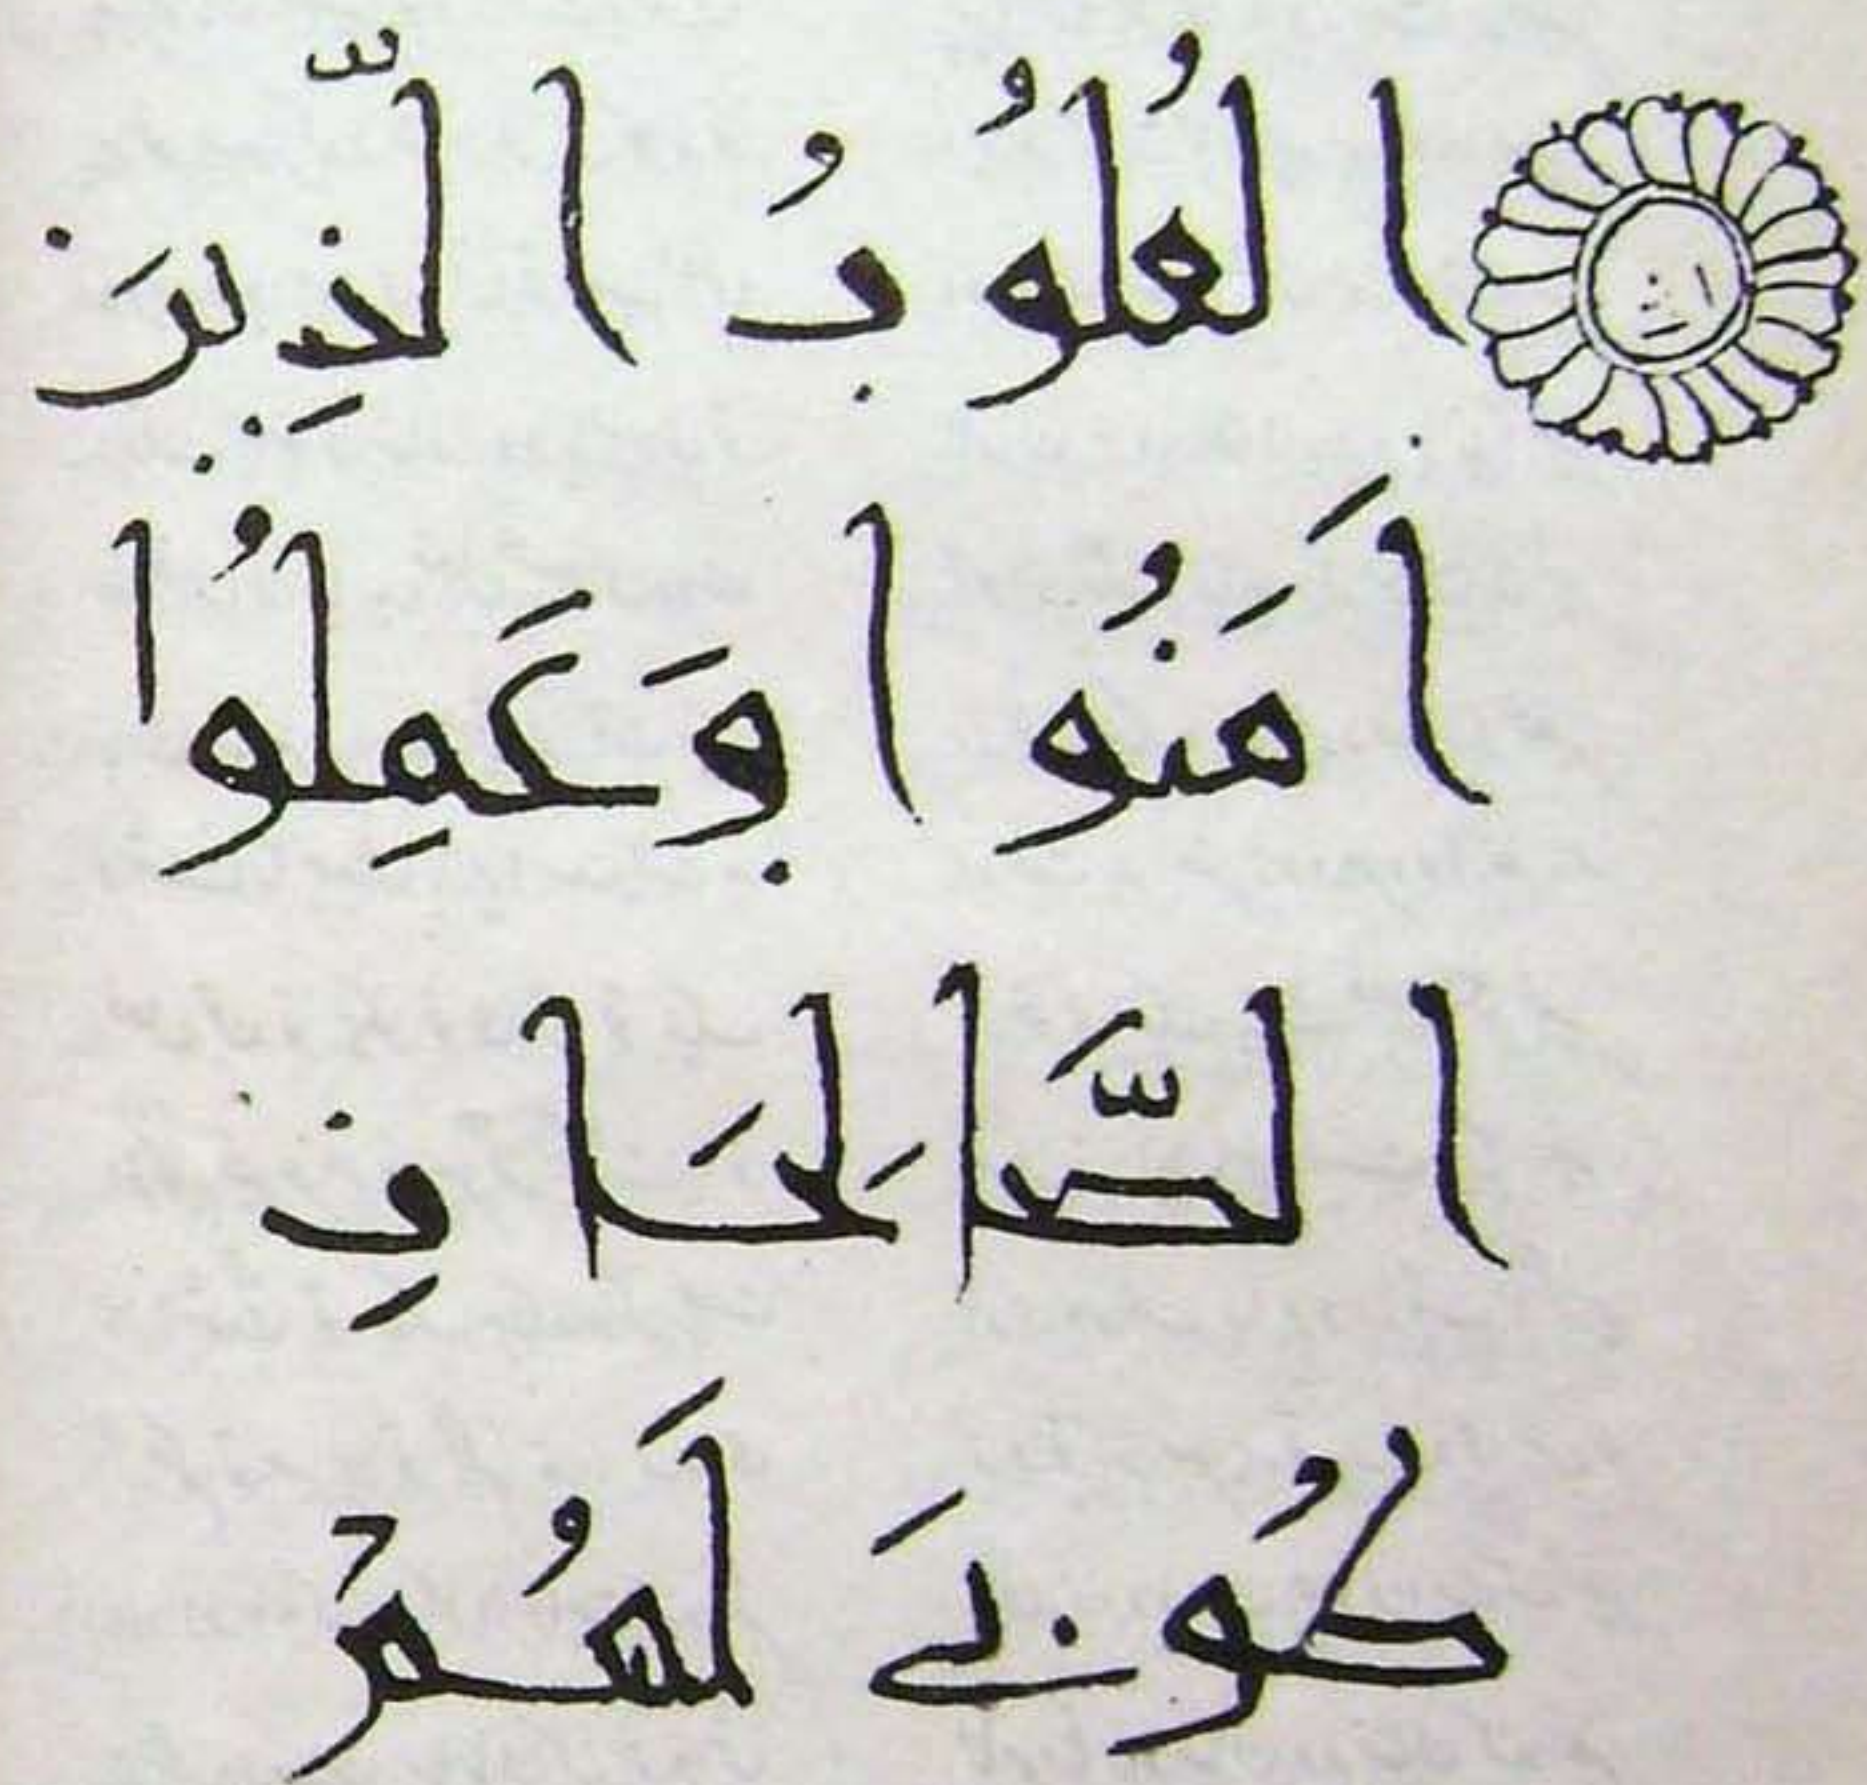 القُلُوُبُ الّذِينَ
اَمَنُوا وَعَمِلُوا
الصَّالِحَاتِ
طُوبَى لَهُمْ